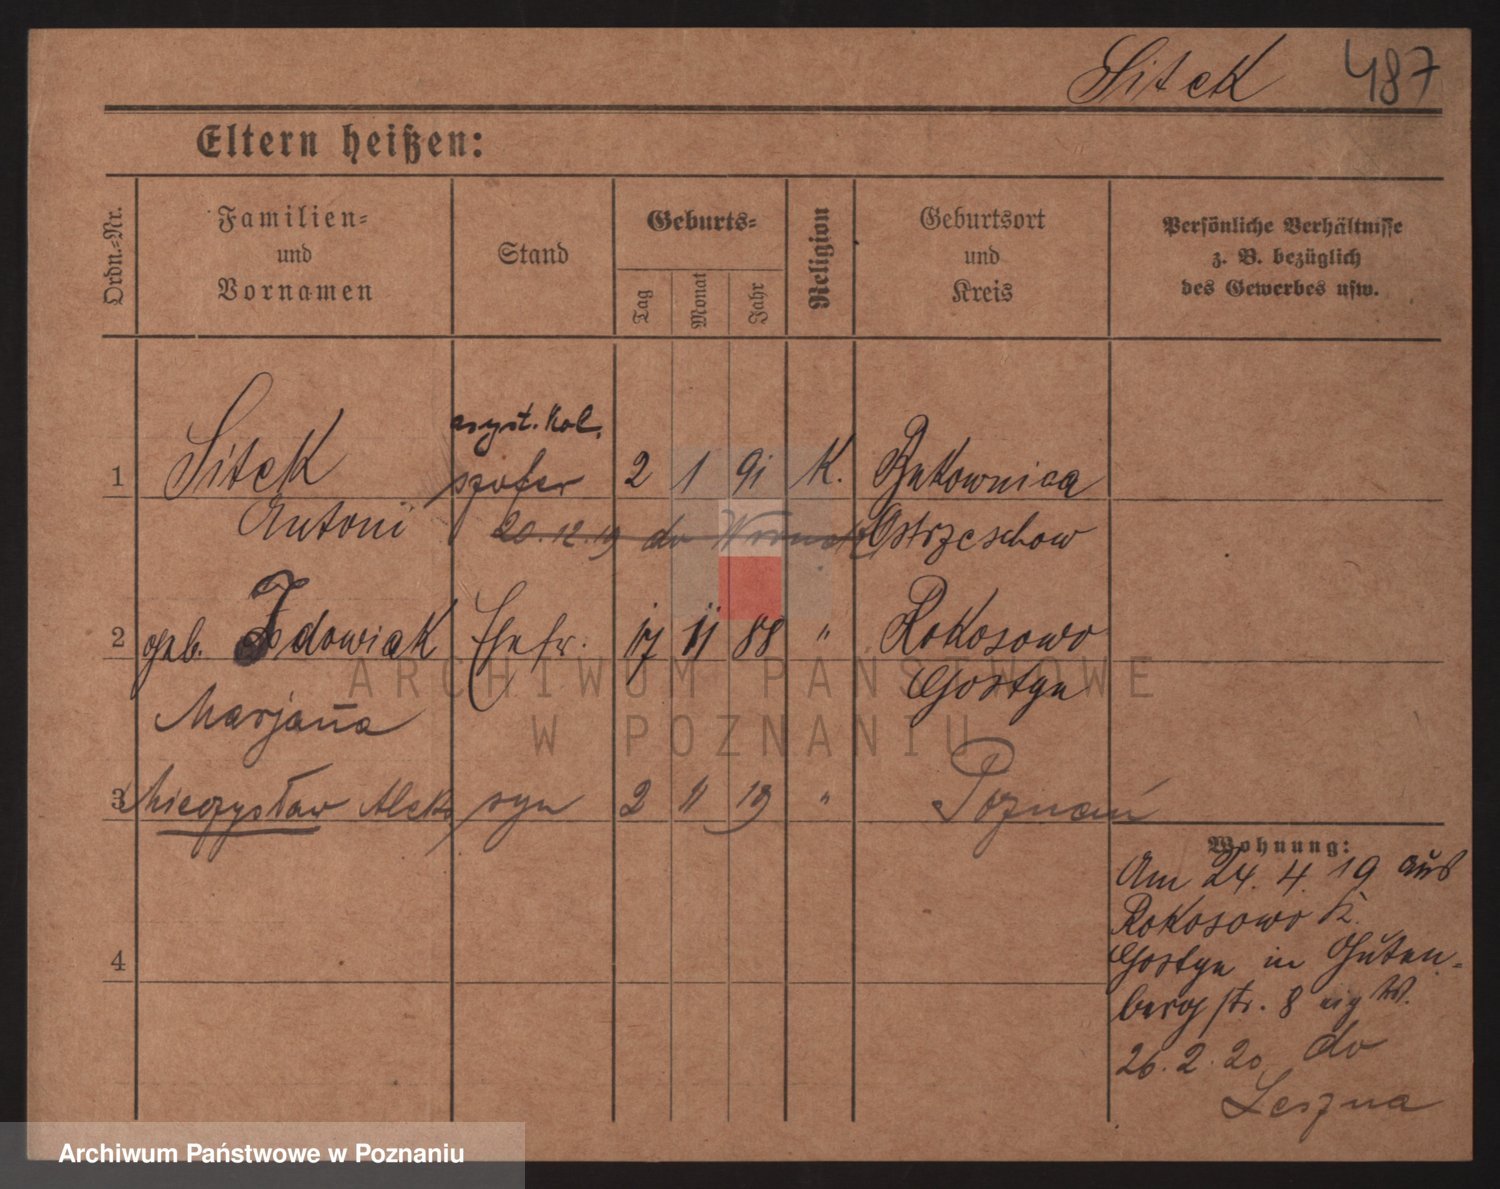 Sitek 487
Eltern heißen:
Ordn.-Nr.
Familien-
und
Vornamen
Stand
Geburts-
Tag
Monat
Jahr
Religion
Geburtsort
und
Kreis
Persönliche Verhältnisse
z. B. bezüglich
des Gewerbes usw.
asyst. kol.
1 Sitek szofer 2 1 91 K. Bukownica
Antoni 20.12.19 do Wronek Ostrzeschow
2 geb. Zdowiak Ehefr. 17 11 88 " Rokosowo
Marjanna Gostyn
3 Mieczysław Aleks syn 2 11 19 " Poznań
4
Wohnung:
Am 24. 4. 19 aus
Rokosowo K.
Gostyn in Guten-
berg str. 8 eig W.
26. 2. 20 do
Leszna
ARCHIWUM PAŃSTWOWE
W POZNANIU
Archiwum Państwowe w Poznaniu